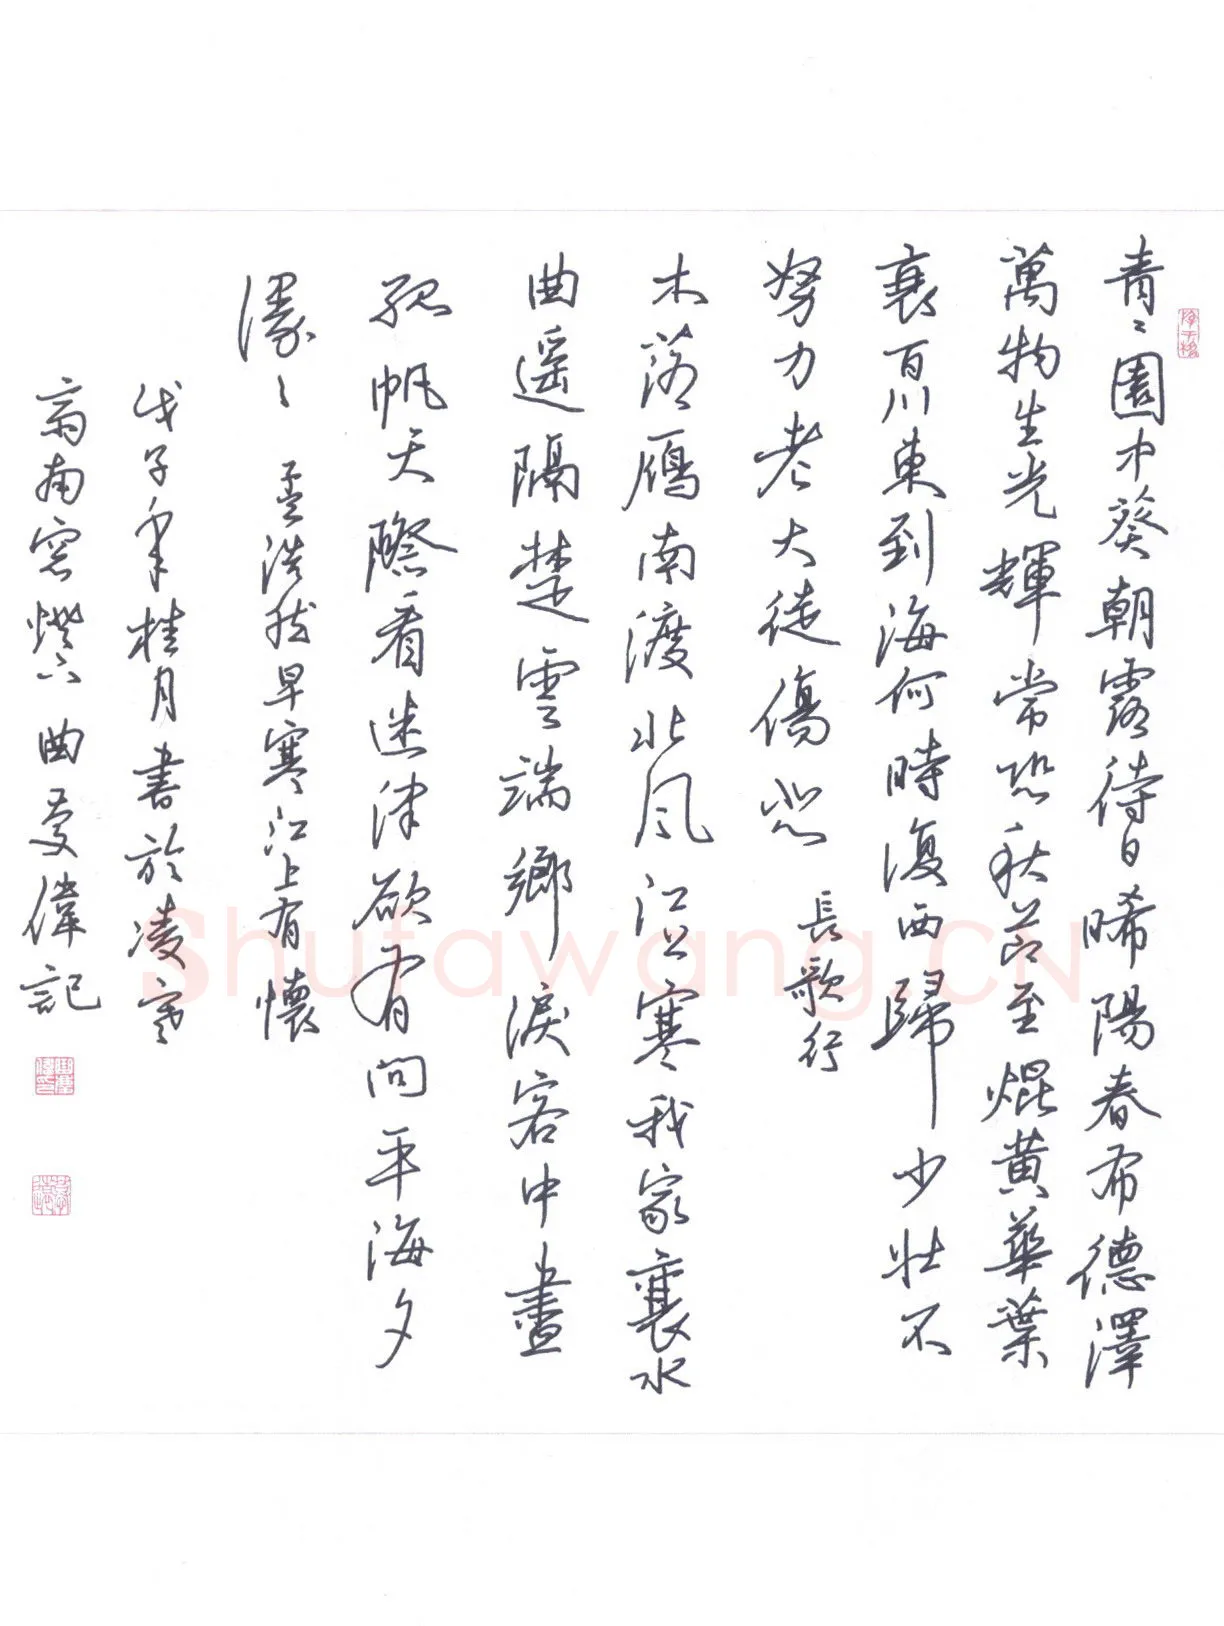 青々園中葵朝露待日晞陽春布德澤
萬物生光輝常恐秋節至焜黄華葉
衰百川東到海何時復西歸少壮不
努力老大徒傷悲
長歌行
木落雁南渡北風江上寒我家襄水
曲遥隔楚雲端鄉淚客中盡
孤帆天際看迷津欲有問平海夕
漫々
孟浩然早寒江上有懷
戊子年桂月書於凌寒
斋南窓燈下曲慶偉記
Shufawang.CN